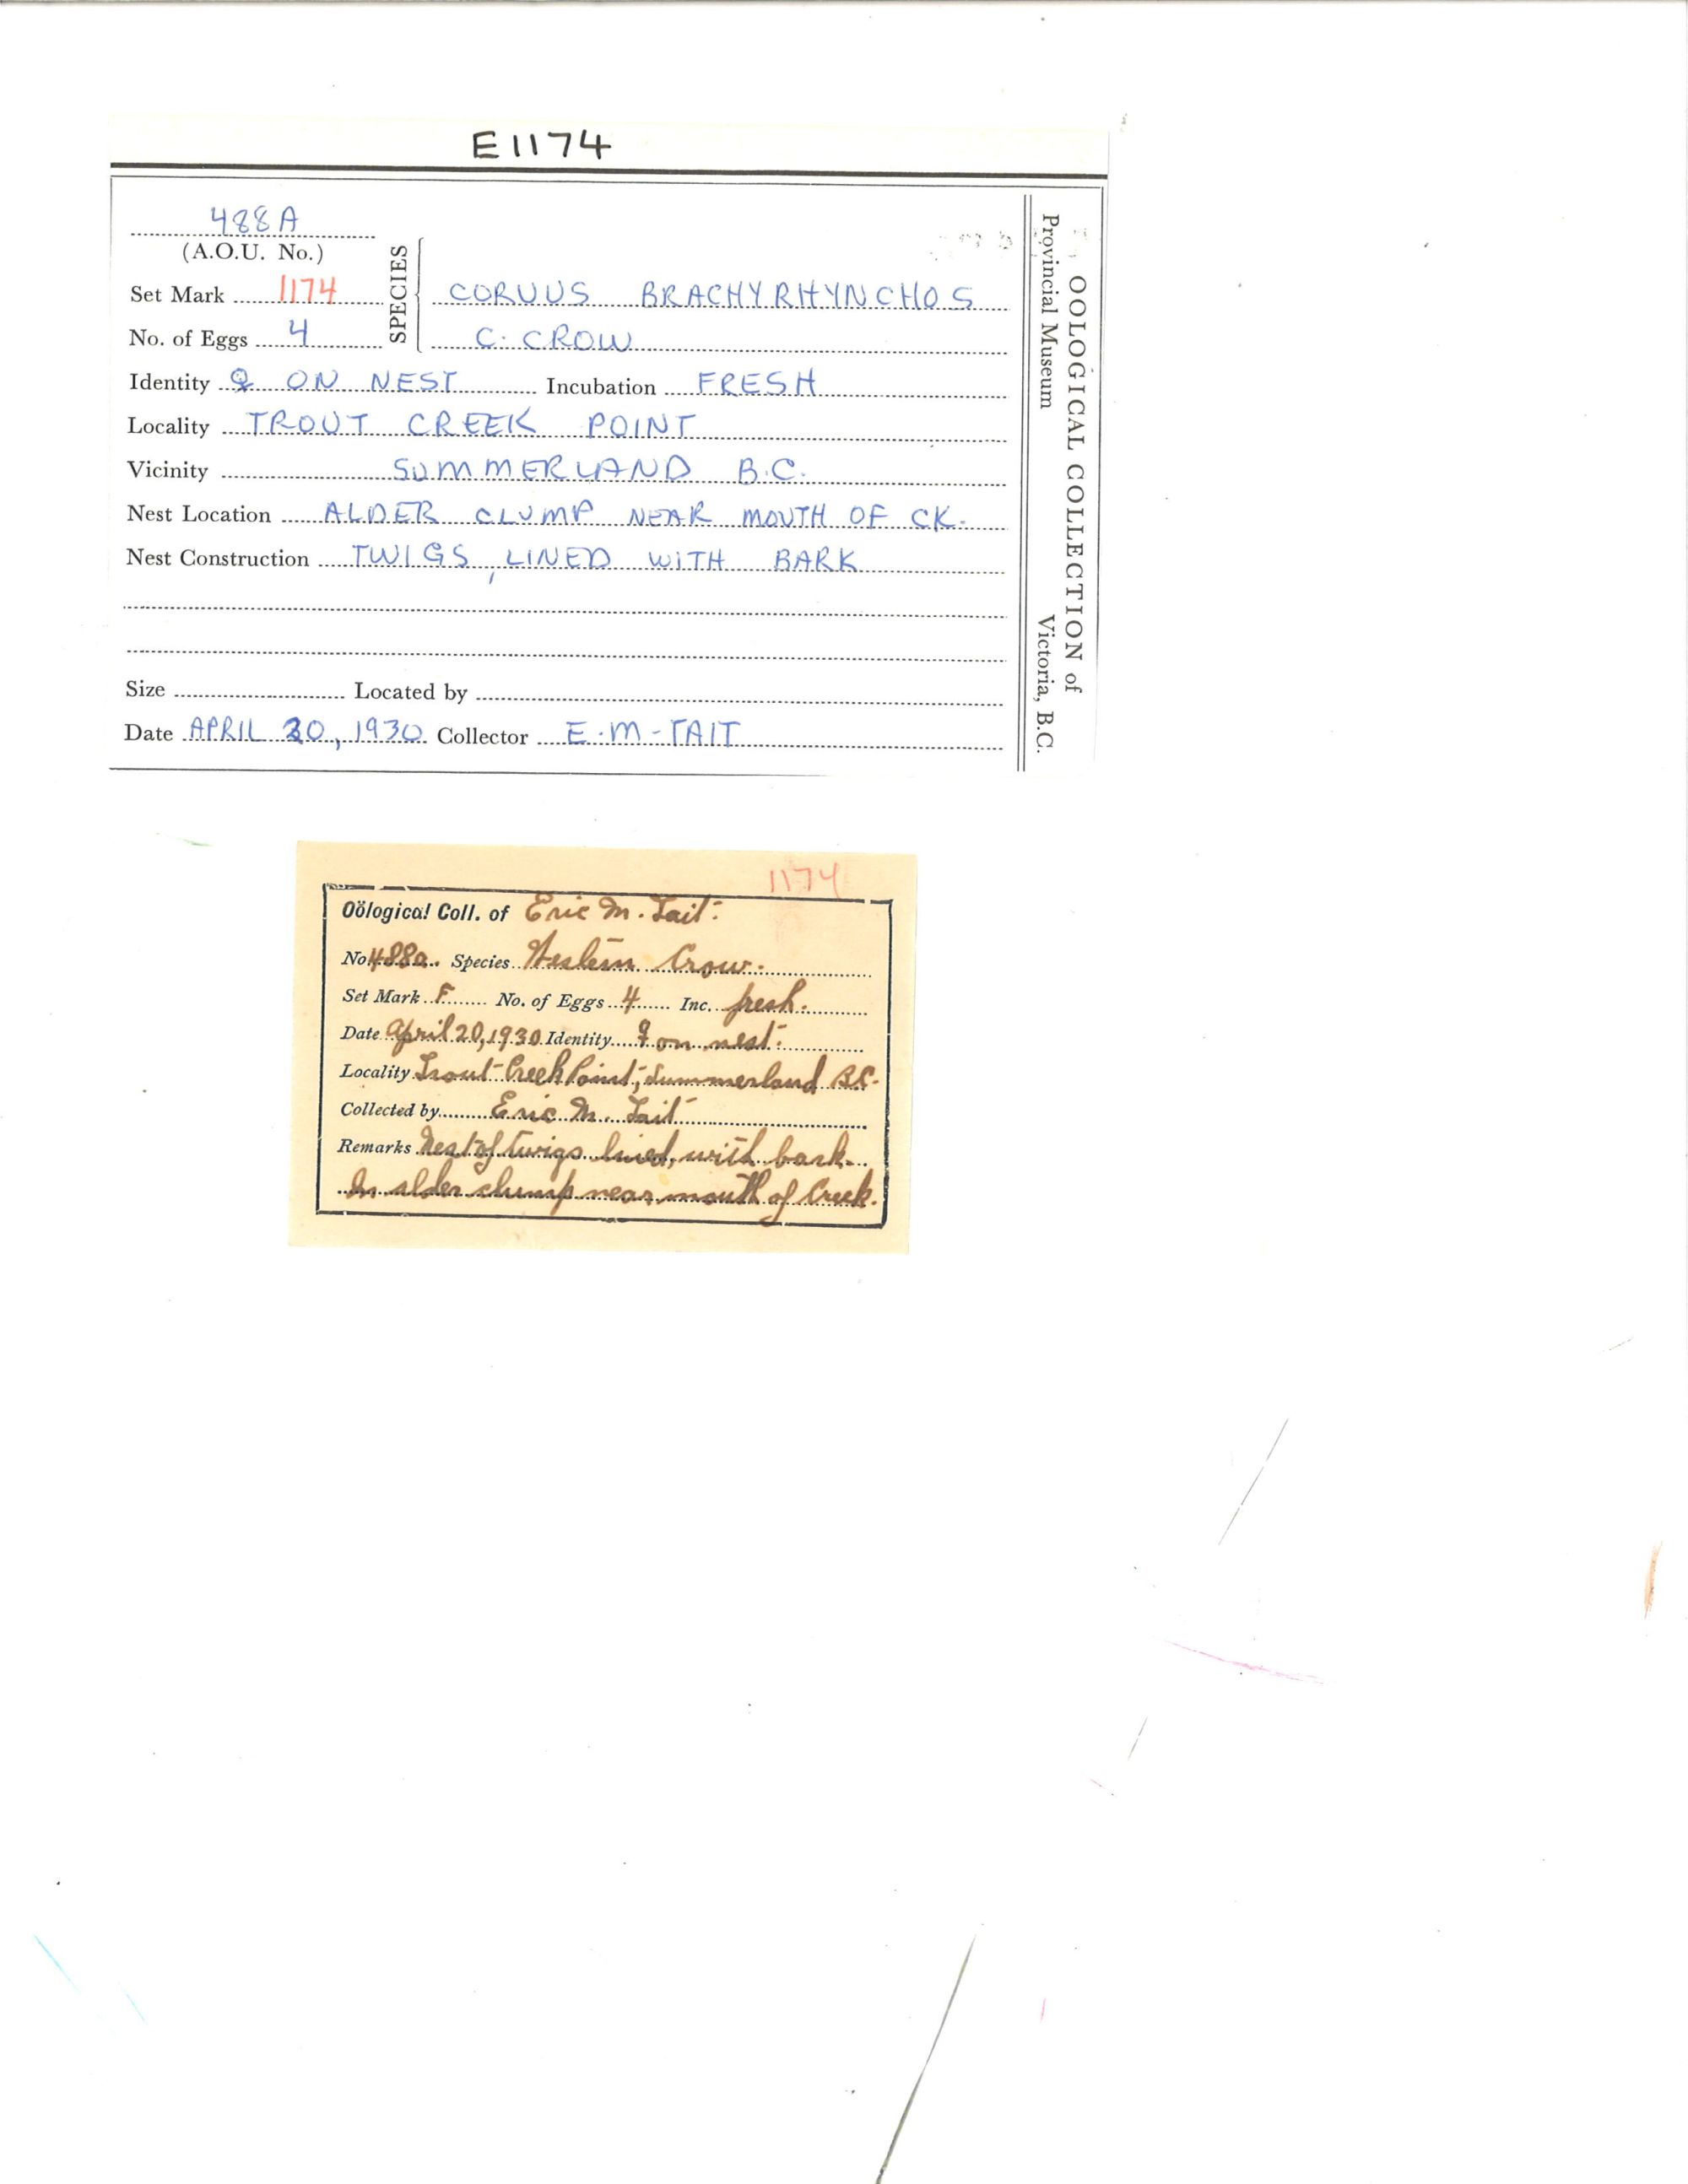 E1174
488A
(A.O.U. No.)
Set Mark 1174
No. of Eggs 4
SPECIES
CORVUS BRACHYRHYNCHOS
C. CROW
Identity ♀ ON NEST Incubation FRESH
Locality TROUT CREEK POINT
Vicinity SUMMERLAND B.C.
Nest Location ALDER CLUMP NEAR MOUTH OF CK.
Nest Construction TWIGS, LINED WITH BARK
Size Located by
Date APRIL 20, 1930 Collector E.M-TAIT
OOLOGICAL COLLECTION of
Provincial Museum Victoria, B.C.
1174
Oölogical Coll. of Eric M. Tait.
No. 488a. Species Western Crow.
Set Mark F No. of Eggs 4 Inc. fresh.
Date April 20, 1930 Identity ♀ on nest.
Locality Trout Creek Point, Summerland B.C.
Collected by Eric M. Tait
Remarks Nest of twigs lined, with bark.
In alder clump near mouth of Creek.